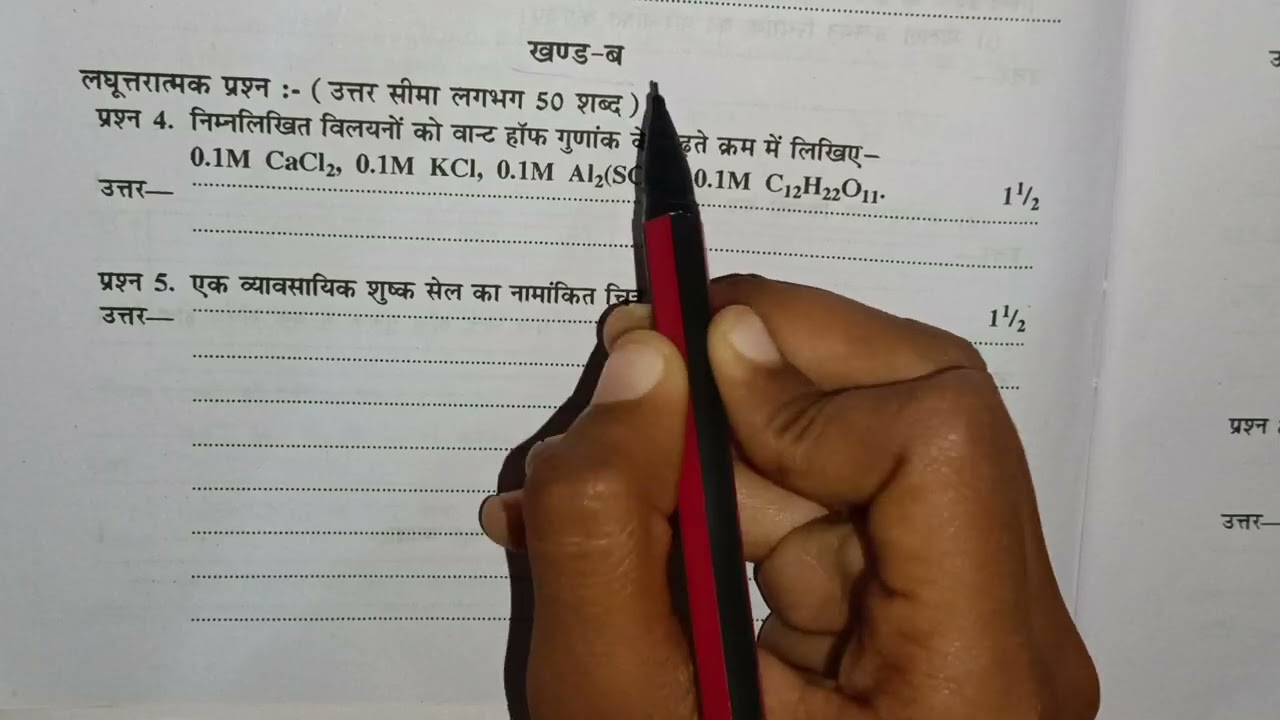 खण्ड-ब
लघूत्तरात्मक प्रश्न :- ( उत्तर सीमा लगभग 50 शब्द )
प्रश्न 4. निम्नलिखित विलयनों को वान्ट हॉफ गुणांक क्रम में लिखिए–
0.1M CaCl₂, 0.1M KCl, 0.1M Al₂(SO 0.1M C₁₂H₂₂O₁₁.
उत्तर— 1¹/₂
प्रश्न 5. एक व्यावसायिक शुष्क सेल का नामांकित
उत्तर— 1¹/₂
प्रश्न
उत्तर—